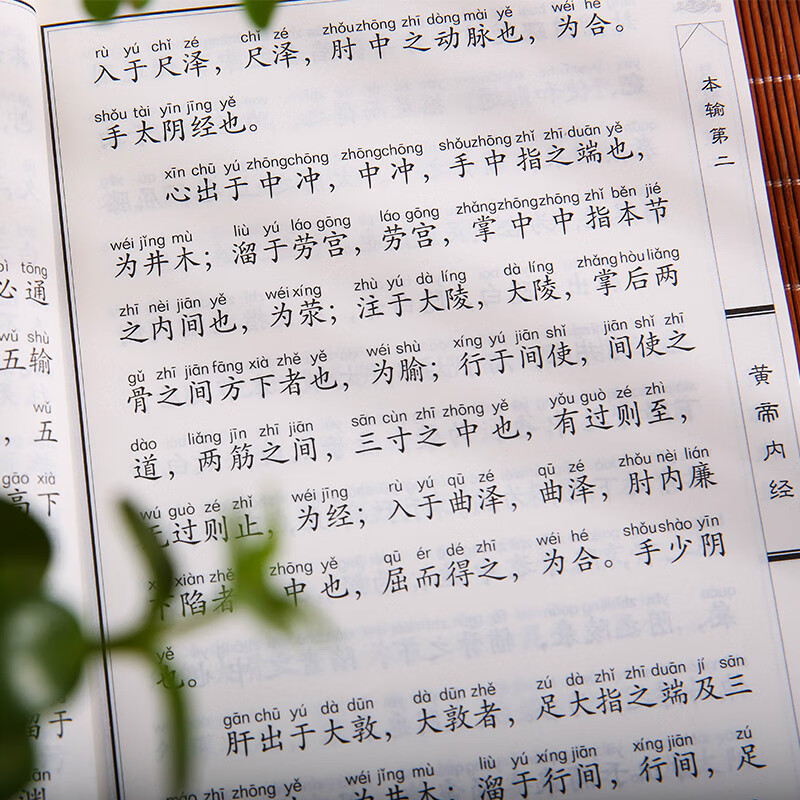 rù yú chǐ zé chǐ zé zhǒu zhōng zhī dòng mài yě wéi hé
入于尺泽，尺泽，肘中之动脉也，为合。
shǒu tài yīn jīng yě
手太阴经也。
xīn chū yú zhōng chōng zhōng chōng shǒu zhōng zhǐ zhī duān yě
心出于中冲，中冲，手中指之端也，
wéi jǐng mù liù yú láo gōng láo gōng zhǎng zhōng zhōng zhǐ běn jié
为井木；溜于劳宫，劳宫，掌中中指本节
zhī nèi jiān yě wéi xíng zhù yú dà líng dà líng zhǎng hòu liǎng
之内间也，为荥；注于大陵，大陵，掌后两
gǔ zhī jiān fāng xià zhě yě wéi shù xíng yú jiān shǐ jiān shǐ zhī
骨之间方下者也，为腧；行于间使，间使之
dào liǎng jīn zhī jiān sān cùn zhī zhōng yě yǒu guò zé zhì
道，两筋之间，三寸之中也，有过则至，
wú guò zé zhǐ wéi jīng rù yú qū zé qū zé zhǒu nèi lián
过则止，为经；入于曲泽，曲泽，肘内廉
xiàn zhě zhōng yě qū ér dé zhī wéi hé shǒu shào yīn
下陷者 中也，屈而得之，为合。手少阴
yě
也。
gān chū yú dà dūn dà dūn zhě zú dà zhǐ zhī duān jí sān
肝出于大敦，大敦者，足大指之端及三
máo zhī zhōng yě wéi jǐng mù liù yú xíng jiān xíng jiān zú
为井木；溜于行间，行间，足
本输第二
黄帝内经
tōng
必通
wǔ shù
五输
wǔ
，五
gāo xià
高下
溜于
yuān
渊